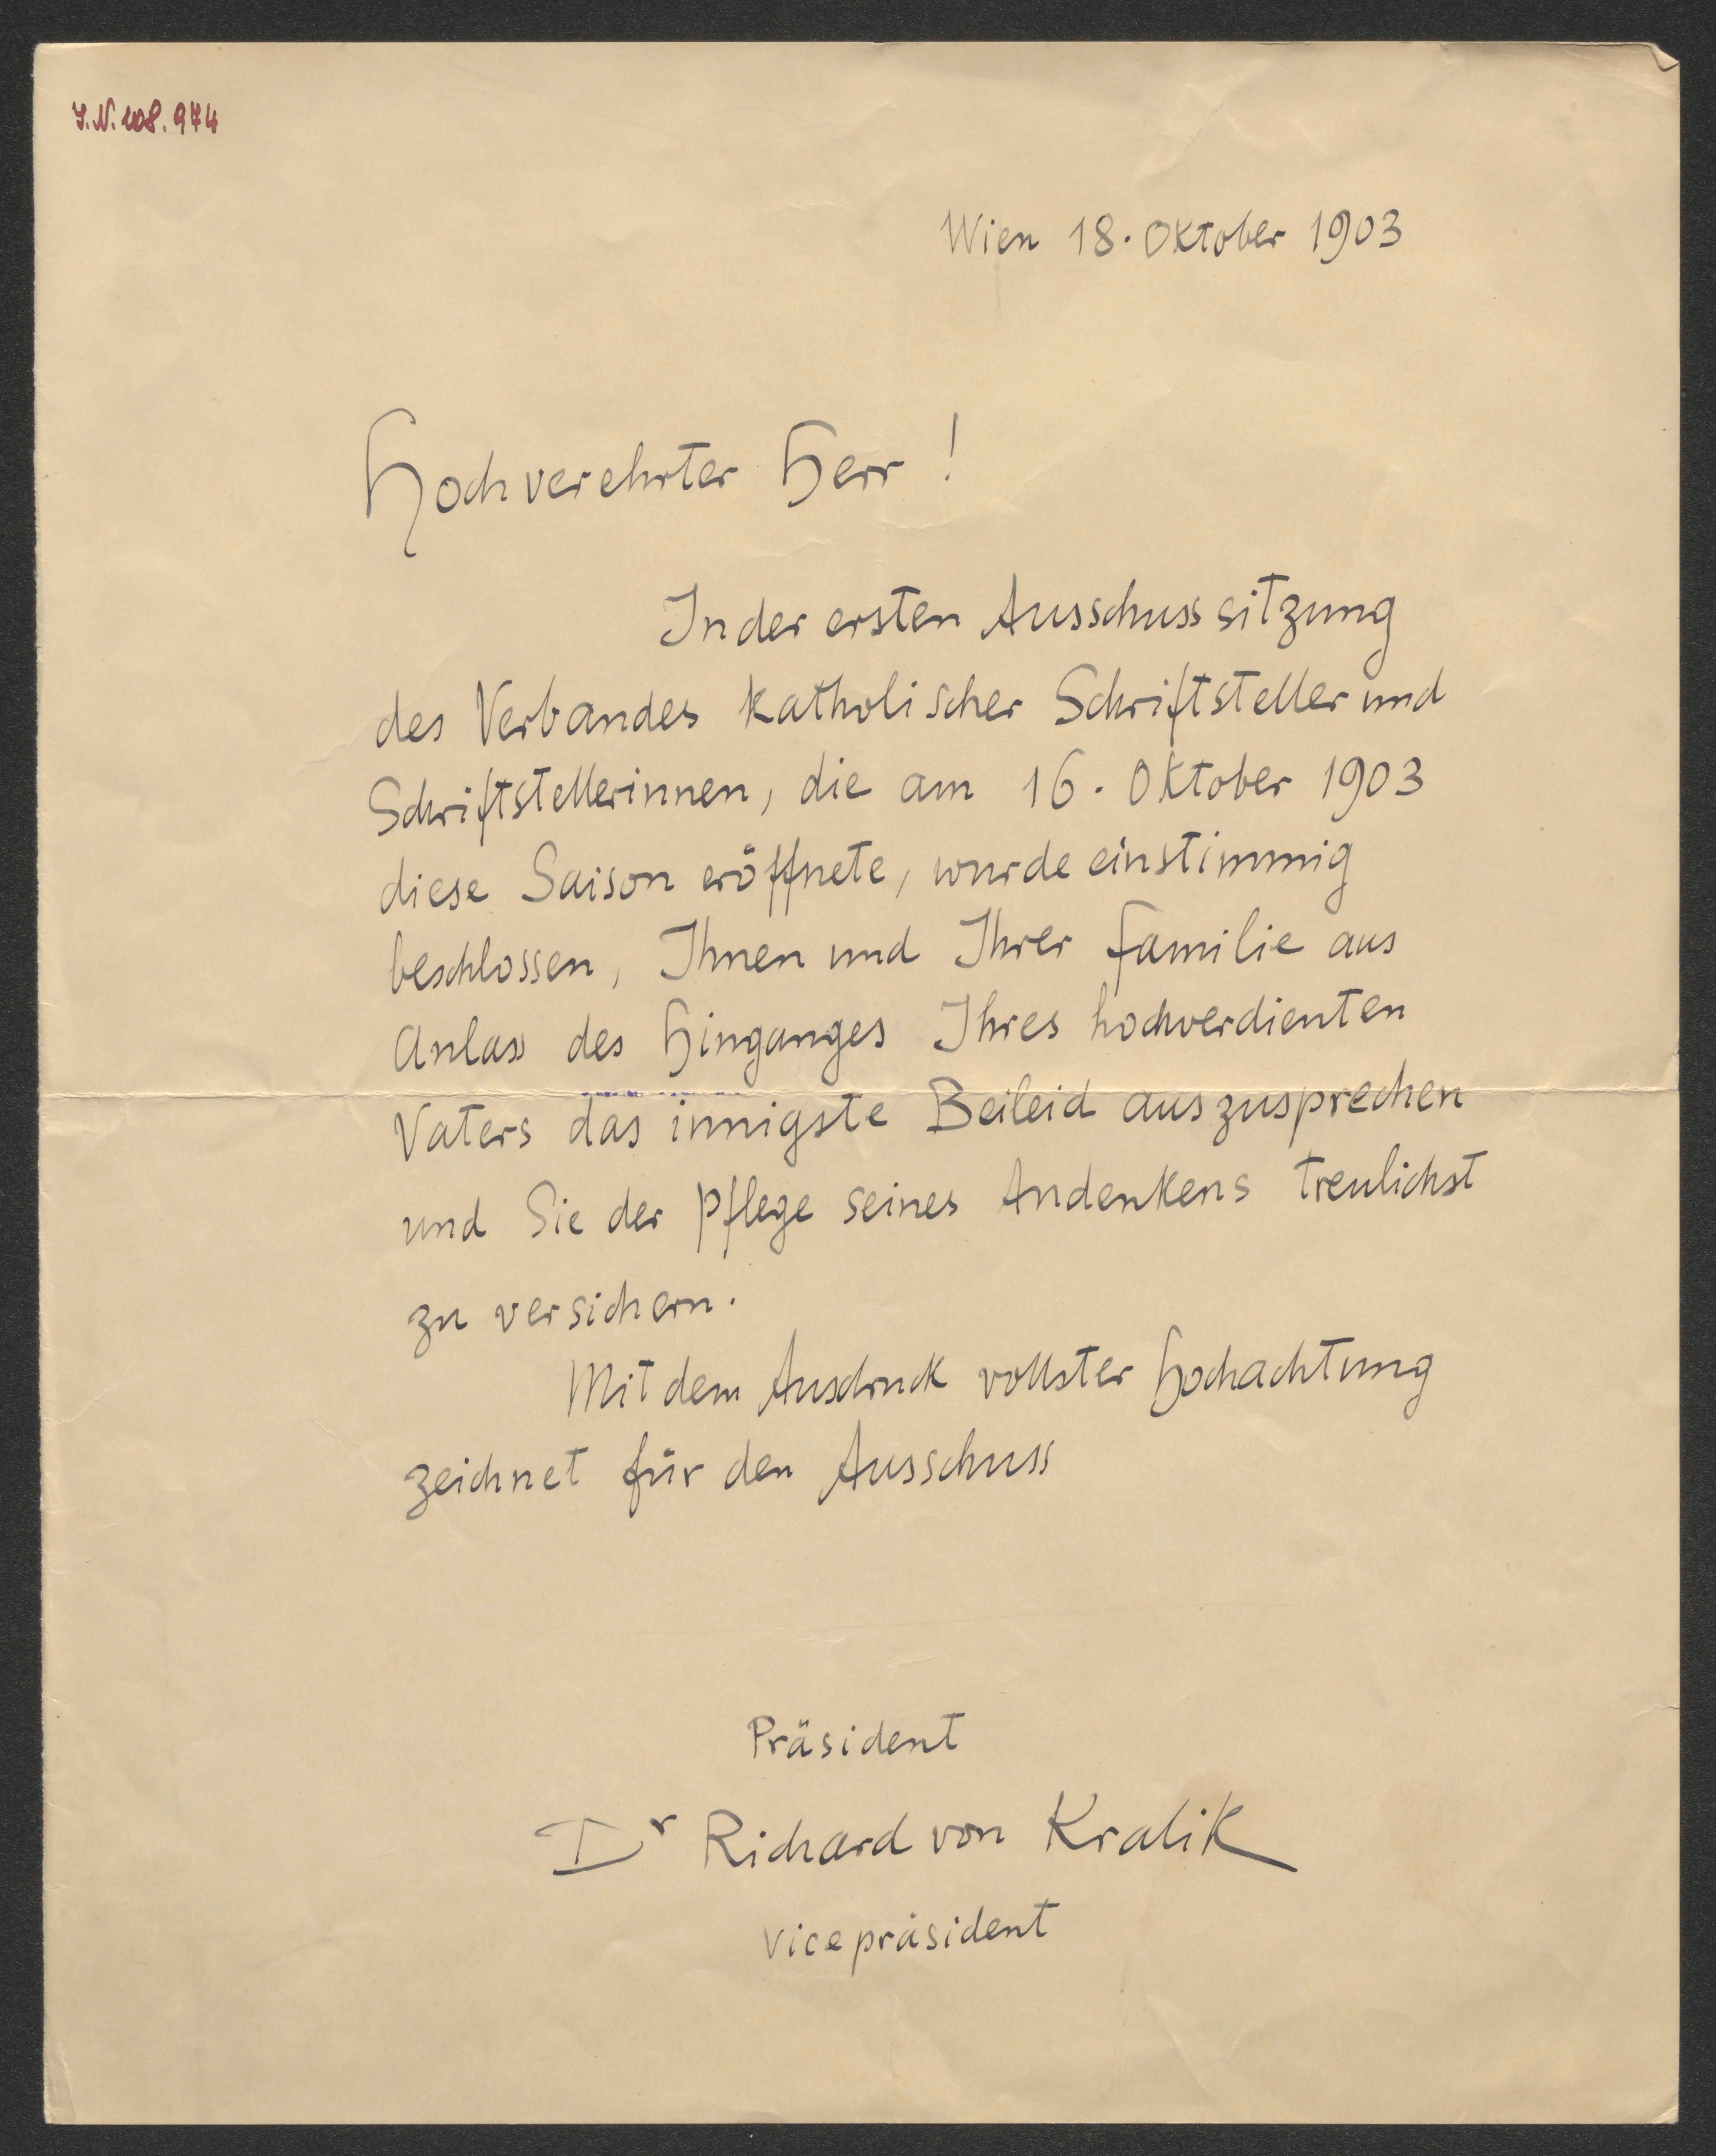 I.N. 108.974
Wien 18. Oktober 1903
Hochverehrter Herr!
In der ersten Ausschusssitzung
des Verbandes katholischer Schriftsteller und
Schriftstellerinnen, die am 16. Oktober 1903
diese Saison eröffnete, wurde einstimmig
beschlossen, Ihnen und Ihrer Familie aus
Anlass des Hinganges Ihres hochverdienten
Vaters das innigste Beileid auszusprechen
und Sie der Pflege seines Andenkens treulichst
zu versichern.
Mit dem Ausdruck vollster Hochachtung
zeichnet für den Ausschuss
Präsident
Dr Richard von Kralik
Vicepräsident